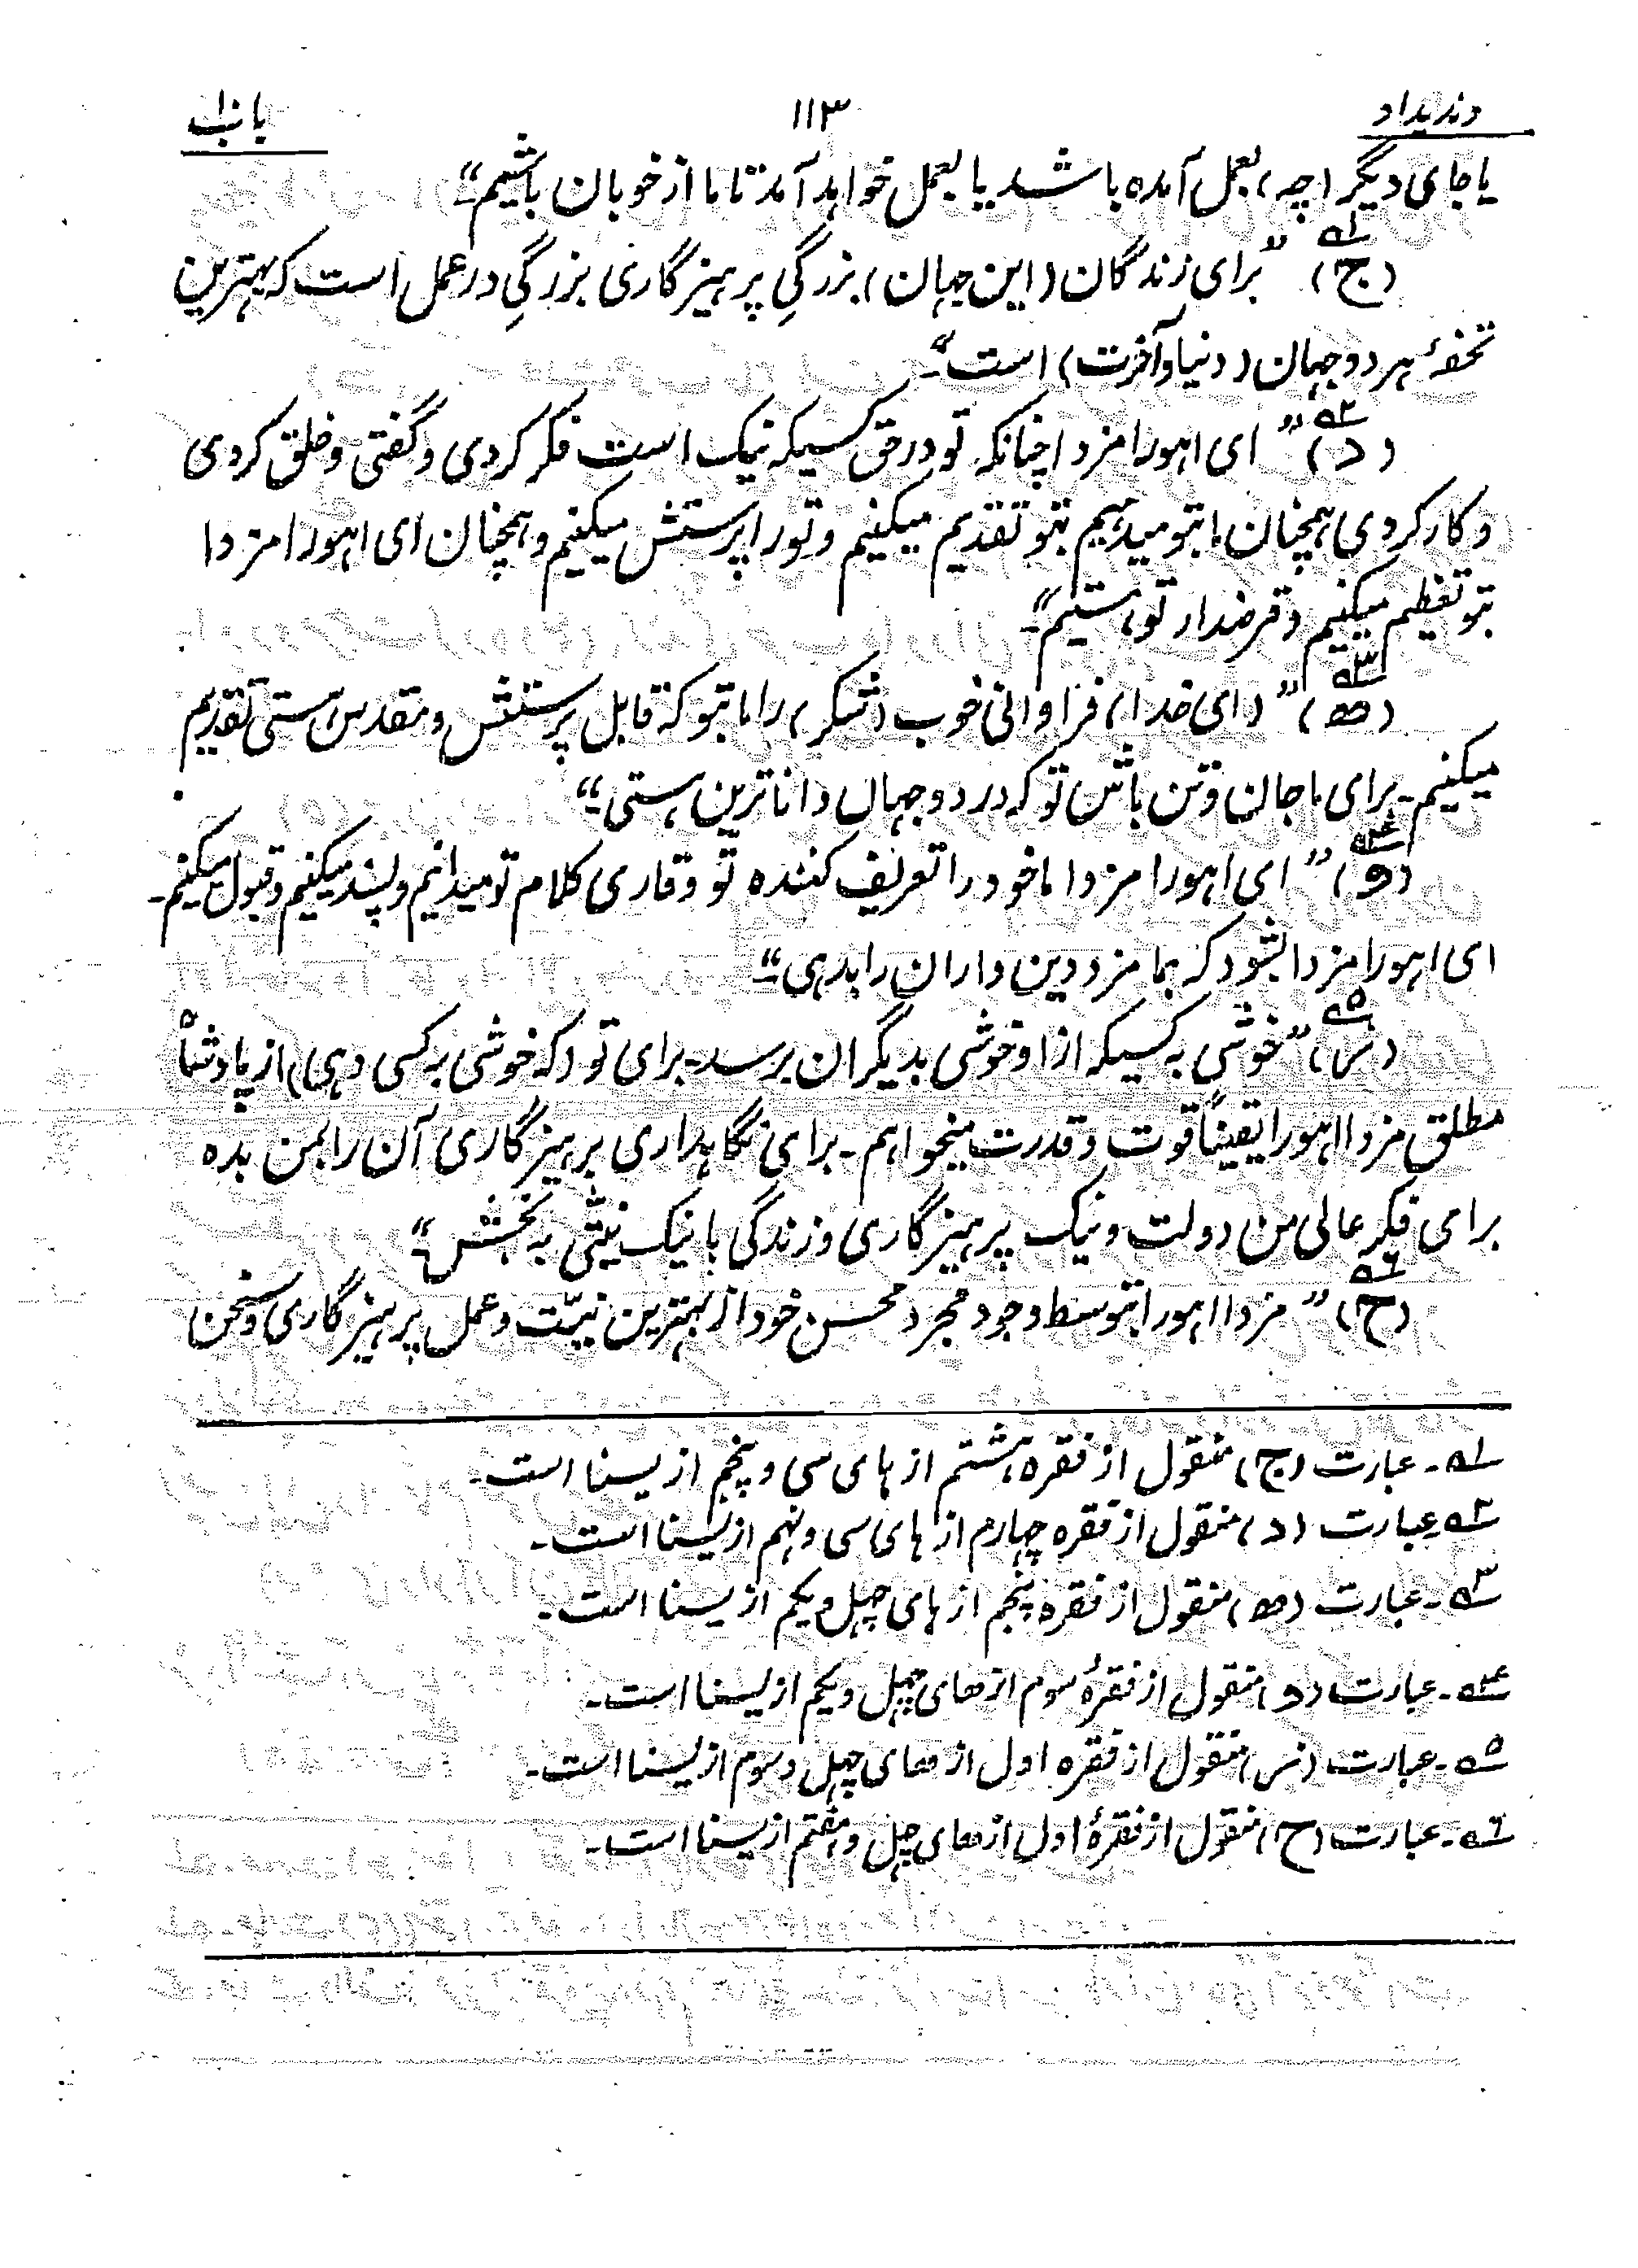 وندیداد ۱۱۳ باب ۱۰
یا جای دیگر (چه) بعمل آمده باشد یا بعمل خواهد آمد تا ما از خوبان باشیم“۔
(ج)۱ ”برای زندگان (این جهان) بزرگیِ پرهیزگاری بزرگیِ در عمل است که بهترین
تحفهٔ هر دو جهان (دنیا و آخرت) است“۔
(د)۲ ” ای اهورا مزدا چنانکه تو در حق کسیکه نیک است فکر کردی و گفتی و خلق کردی
و کار کردی همچنان ما بتو میدهیم بتو تقدیم میکنیم و تو را پرستش میکنیم و همچنان ای اهورا مزدا
بتو تعظیم میکنیم و قرضدار تو هستیم“۔
(ه)۳ ” (ای خدا) فراوانی خوب (شکر) را ما بتو که قابل پرستش و مقدس هستی تقدیم
میکنیم۔ برای ما جان و تن باش تو که در دو جهان داناترین هستی“۔
(و)۴ ” ای اهورا مزدا ما خود را تعریف کننده تو و قاری کلام تو میدانیم و پسند میکنیم و قبول میکنیم۔
ای اهورا مزدا بشود که بما مزد دین داران را بدهی“۔
(ز)۵ ”خوشی به کسیکه از او خوشی بدیگران برسد۔ برای تو (که خوشی به کسی دهی) از پادشاه
مطلق مزدا اهورا یقیناً قوت و قدرت میخواهم۔ برای نگاهداری پرهیزگاری آن را بمن بده
برای فکر عالی من دولت و نیک پرهیزگاری و زندگی با نیک نیتی به بخش“۔
(ح)۶ ” مزدا اهورا بتوسط وجود مجرد محسن خود از بهترین نیّت و عمل پرهیزگاری و سخن
۱ـه۔ عبارت (ج) منقول از فقره هشتم از های سی و پنجم از یسنا است۔
۲ـه۔ عبارت (د) منقول از فقره چهارم از های سی و نهم از یسنا است۔
۳ـه۔ عبارت (ه) منقول از فقره پنجم از های چهل و یکم از یسنا است۔
۴ـه۔ عبارت (و) منقول از فقرهٔ سوم از های چهل و یکم از یسنا است۔
۵ـه۔ عبارت (ز) منقول از فقره اول از های چهل و سوم از یسنا است۔
۶ـه۔ عبارت (ح) منقول از فقرهٔ اول از های چهل و هفتم از یسنا است۔